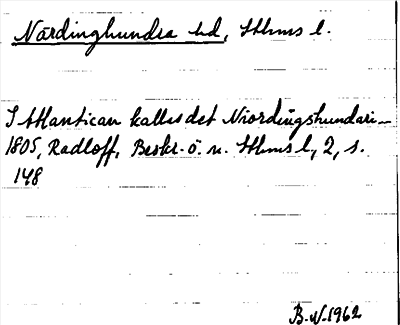 Närdinghundra hd, Sthms l.
I Atlantican kallas det Niordingshundari_
1805, Radloff, Beskr. ö. n. Sthms l, 2, s.
148
B.W. 1962